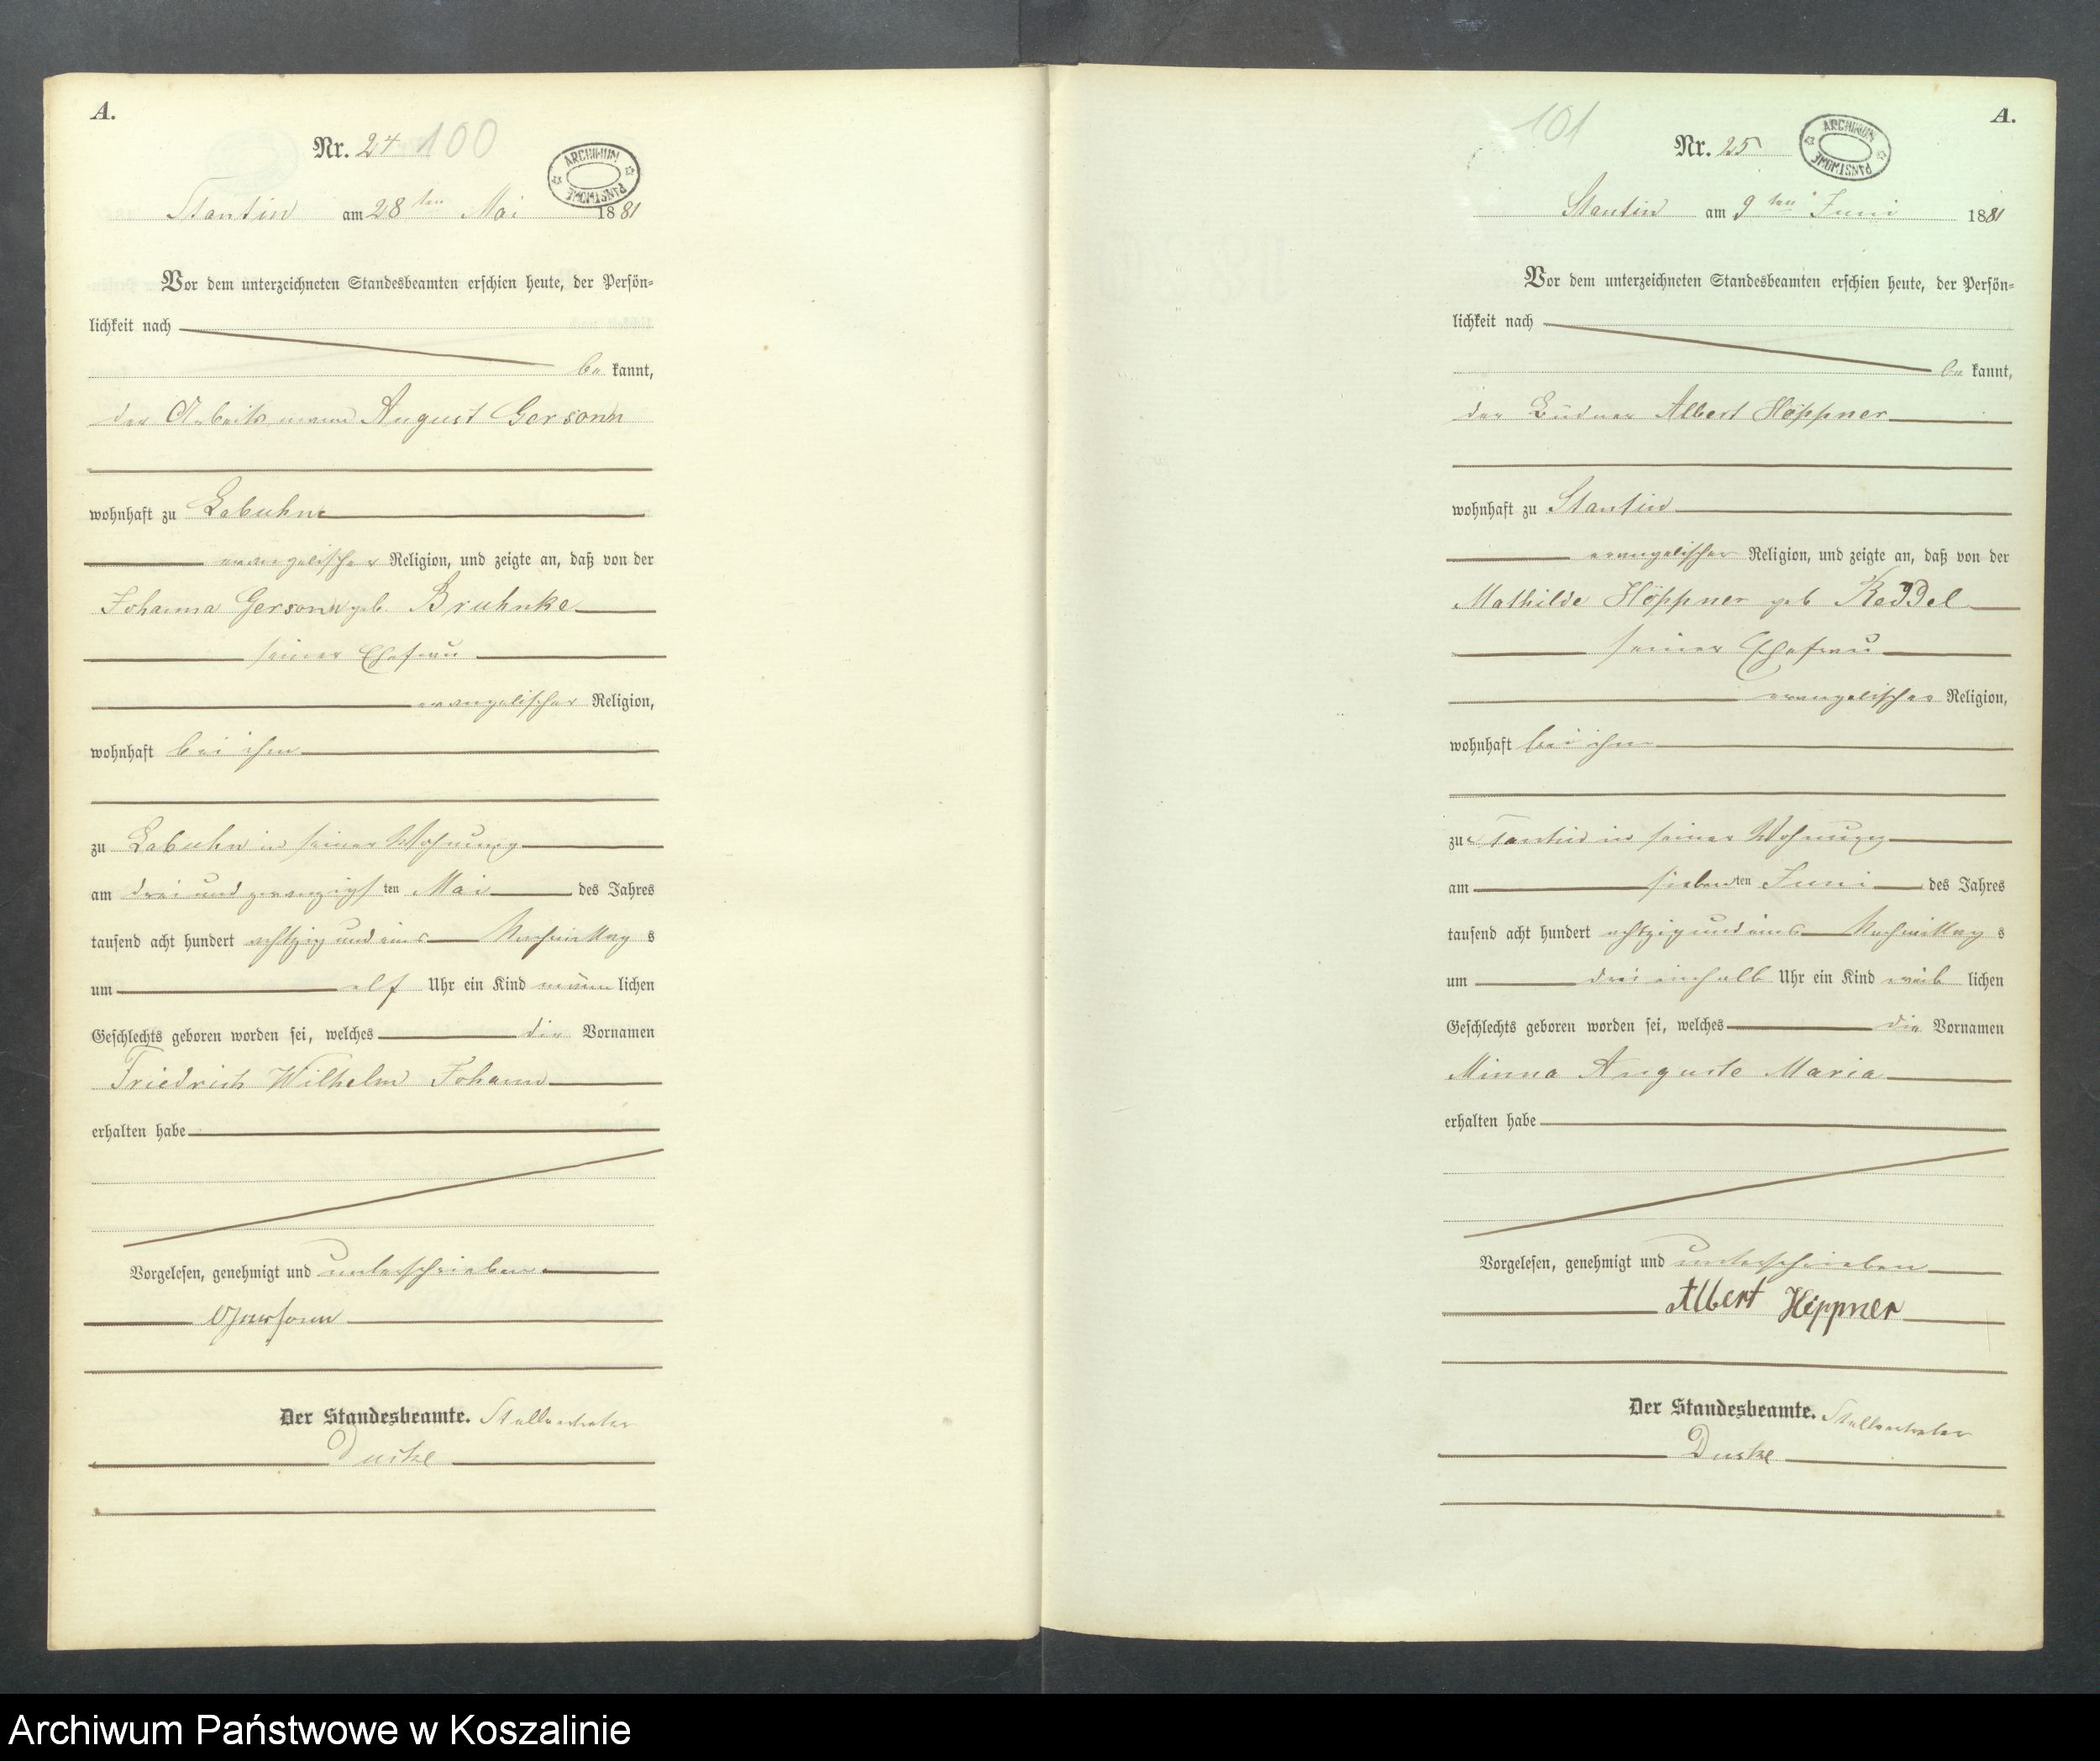 A.
Nr. 24 100
ARCHIWUM PAŃSTWOWE
Stantin am 28ten Mai 1881
Vor dem unterzeichneten Standesbeamten erschien heute, der Persön-
lichkeit nach
be kannt,
der Arbeitsmann August Gersonn
wohnhaft zu Labuhn
evangelischer Religion, und zeigte an, daß von der
Johanna Gersonn geb. Bruhnke
seiner Ehefrau
evangelischer Religion,
wohnhaft bei ihm
zu Labuhn in seiner Wohnung
am drei und zwanzigsten Mai des Jahres
tausend acht hundert achtzig und eins Nachmittags
um elf Uhr ein Kind männlichen
Geschlechts geboren worden sei, welches die Vornamen
Friedrich Wilhelm Johann
erhalten habe
Vorgelesen, genehmigt und unterschrieben
Gersonn
Der Standesbeamte. Stellvertreter
Duske
A.
101
Nr. 25
ARCHIWUM PAŃSTWOWE
Stantin am 9ten Juni 1881
Vor dem unterzeichneten Standesbeamten erschien heute, der Persön-
lichkeit nach
be kannt,
der Büdner Albert Höppner
wohnhaft zu Stantin
evangelischer Religion, und zeigte an, daß von der
Mathilde Höppner geb Reddel
seiner Ehefrau
evangelischer Religion,
wohnhaft bei ihm
zu Stantin in seiner Wohnung
am siebenten Juni des Jahres
tausend acht hundert achtzig und eins Nachmittags
um drei einhalb Uhr ein Kind weiblichen
Geschlechts geboren worden sei, welches die Vornamen
Minna Auguste Maria
erhalten habe
Vorgelesen, genehmigt und unterschrieben
Albert Höppner
Der Standesbeamte. Stellvertreter
Duske
Archiwum Państwowe w Koszalinie